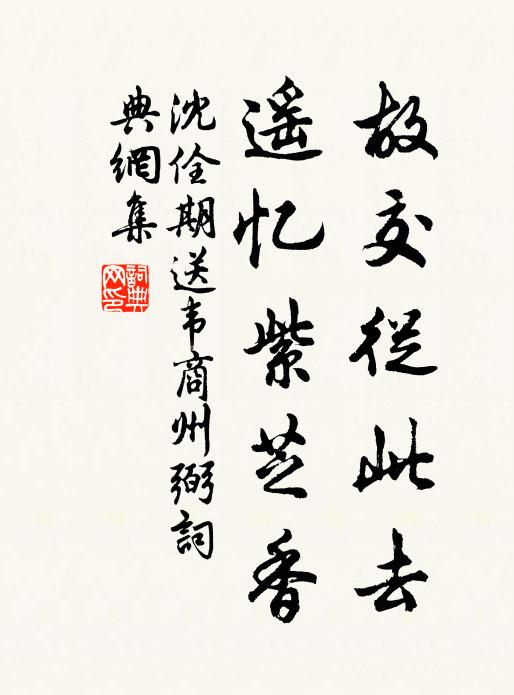 故交從此去
遥忆紫芝香
沈佺期送韦商州弼詞
典網集
詞典
网印